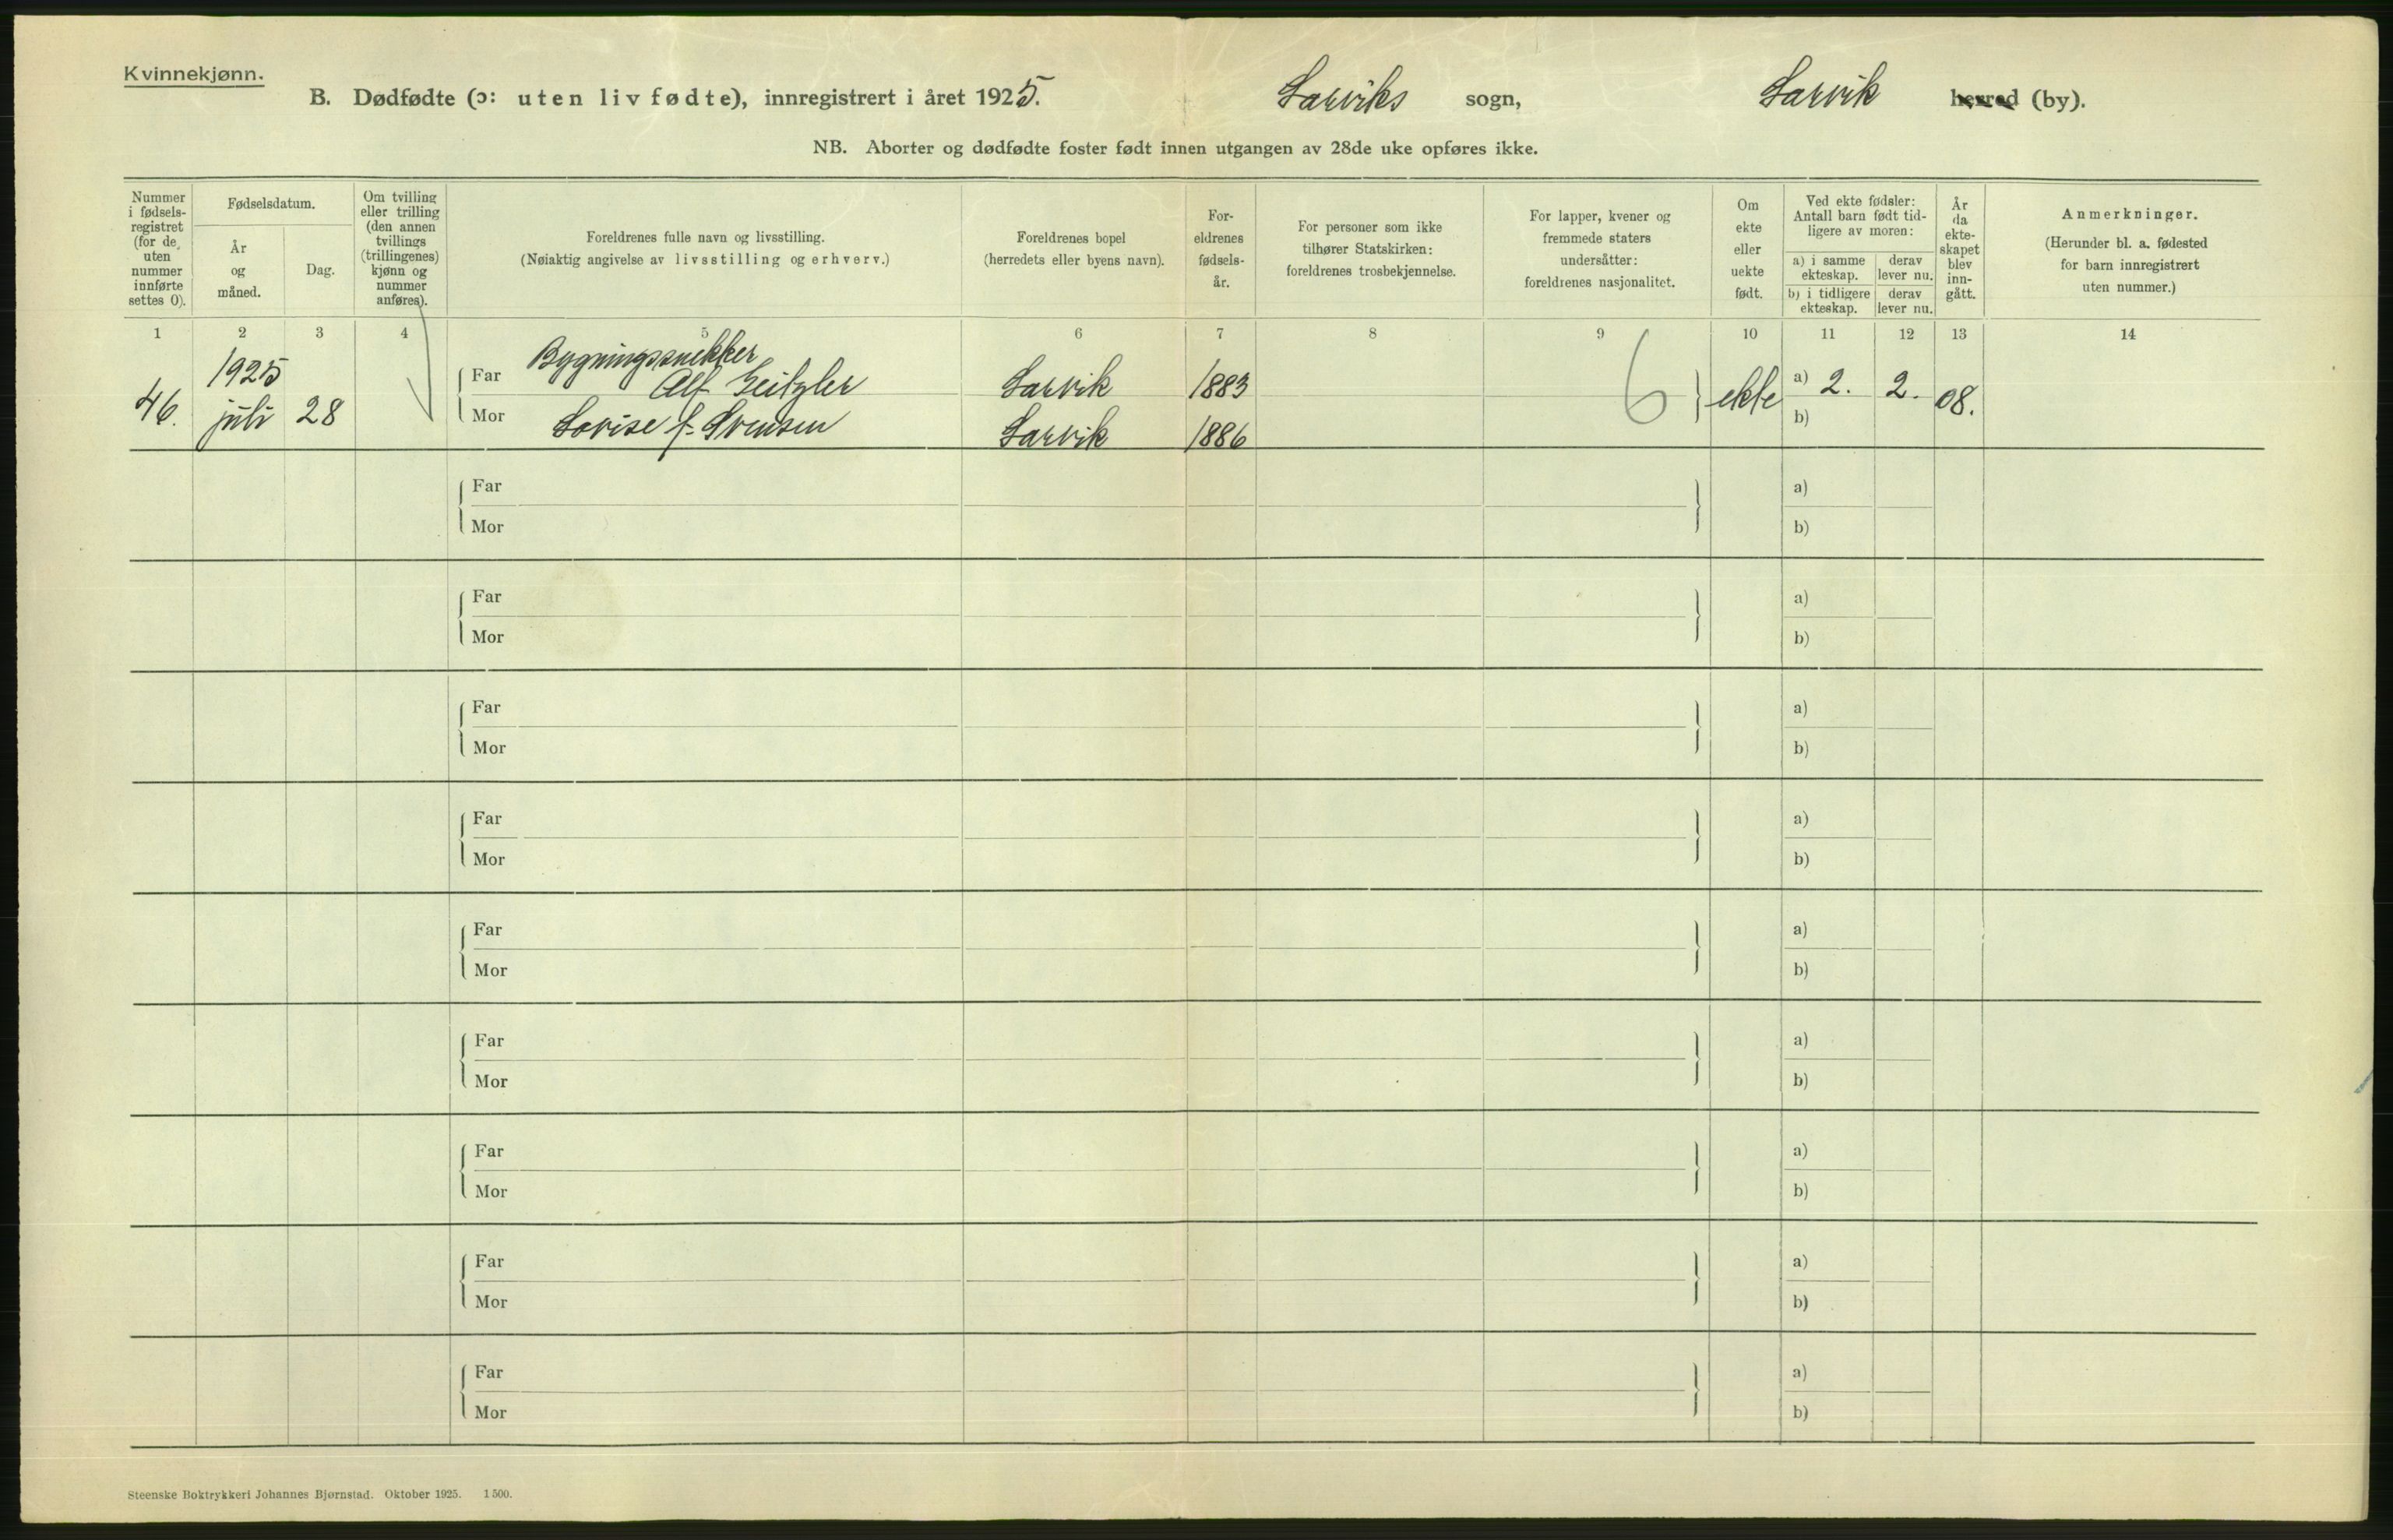 Kvinnekjønn.
B. Dødfødte (ɔ: uten liv fødte), innregistrert i året 1925. Larviks sogn, Larvik herred (by).
NB. Aborter og dødfødte foster født innen utgangen av 28de uke opføres ikke.
Nummer
i fødsels-
registret
(for de
uten
nummer
innførte
settes 0).
Fødselsdatum.
År
og
måned.
Dag.
Om tvilling
eller trilling
(den annen
tvillings
(trillingenes)
kjønn og
nummer
anføres).
Foreldrenes fulle navn og livsstilling.
(Nøiaktig angivelse av livsstilling og erhverv.)
Foreldrenes bopel
(herredets eller byens navn).
For-
eldrenes
fødsels-
år.
For personer som ikke
tilhører Statskirken:
foreldrenes trosbekjennelse.
For lapper, kvener og
fremmede staters
undersåtter:
foreldrenes nasjonalitet.
Om
ekte
eller
uekte
født.
Ved ekte fødsler:
Antall barn født tid-
ligere av moren:
a) i samme
ekteskap.
derav
lever nu.
b) i tidligere
ekteskap.
derav
lever nu.
År
da
ekte-
skapet
blev
inn-
gått.
Anmerkninger.
(Herunder bl. a. fødested
for barn innregistrert
uten nummer.)
1 2 3 4 5 6 7 8 9 10 11 12 13 14
Bygningssnekker
1925 Far Alf Zeitzler Larvik 1883 a) 2. 2.
46. juli 28 6 ekte 08.
Mor Lovise f. Svensen Larvik 1886 b)
Far a)
Mor b)
Far a)
Mor b)
Far a)
Mor b)
Far a)
Mor b)
Far a)
Mor b)
Far a)
Mor b)
Far a)
Mor b)
Far a)
Mor b)
Far a)
Mor b)
Steenske Boktrykkeri Johannes Bjørnstad. Oktober 1925. 1500.